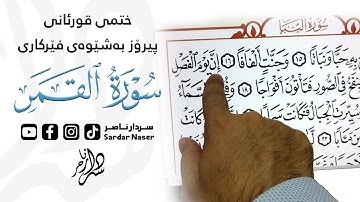 ختمی قورئانی
پیرۆز بەشێوەی فێرکاری
سُورَةُ القَمَر
سردار ناصر
Sardar Naser
سُورَةُ النَّبَإِ
بِهِۦ حَبًّا وَنَبَاتًا ١٥ وَجَنَّٰتٍ أَلْفَافًا ١٦ إِنَّ يَوْمَ ٱلْفَصْلِ
فِي ٱلصُّورِ فَتَأْتُونَ أَفْوَاجًا ١٨
ٱلْجِبَالُ فَكَانَتْ